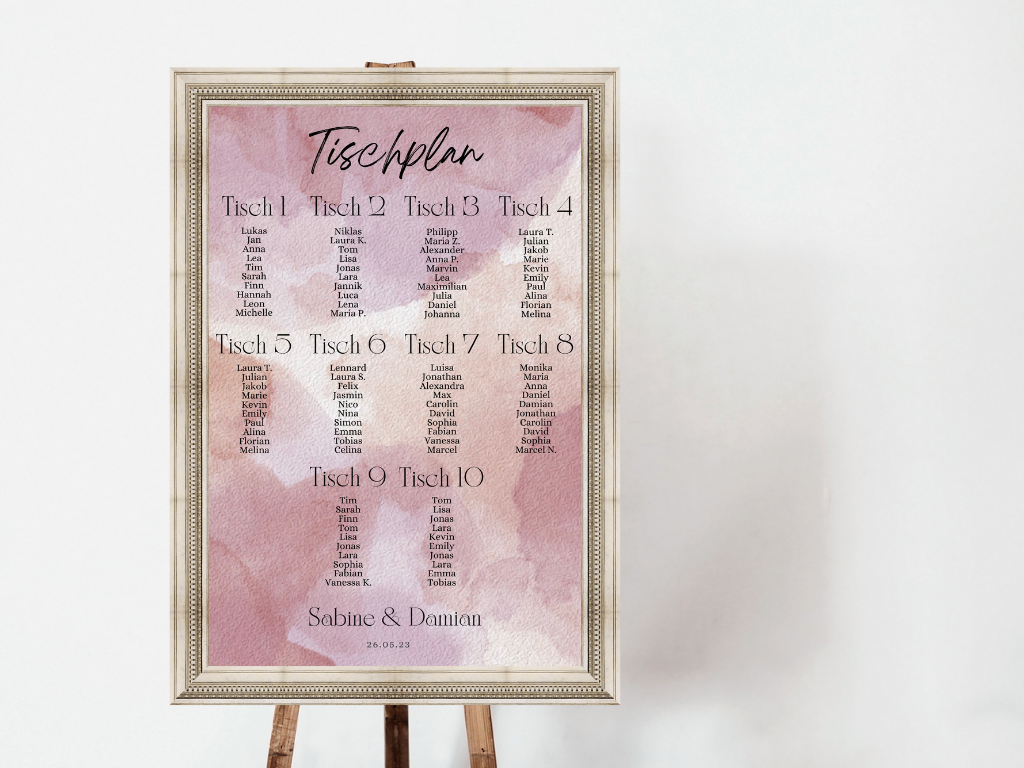 Tischplan
Tisch 1 Tisch 2 Tisch 3 Tisch 4
Lukas Niklas Philipp Laura T.
Jan Laura K. Maria Z. Julian
Anna Tom Alexander Jakob
Lea Lisa Anna P. Marie
Tim Jonas Marvin Kevin
Sarah Lara Lea Emily
Finn Jannik Maximilian Paul
Hannah Luca Julia Alina
Leon Lena Daniel Florian
Michelle Maria P. Johanna Melina
Tisch 5 Tisch 6 Tisch 7 Tisch 8
Laura T. Lennard Luisa Monika
Julian Laura S. Jonathan Maria
Jakob Felix Alexandra Anna
Marie Jasmin Max Daniel
Kevin Nico Carolin Damian
Emily Nina David Jonathan
Paul Simon Sophia Carolin
Alina Emma Fabian David
Florian Tobias Vanessa Sophia
Melina Celina Marcel Marcel N.
Tisch 9 Tisch 10
Tim Tom
Sarah Lisa
Finn Jonas
Tom Lara
Lisa Kevin
Jonas Emily
Lara Jonas
Sophia Lara
Fabian Emma
Vanessa K. Tobias
Sabine & Damian
26.05.23